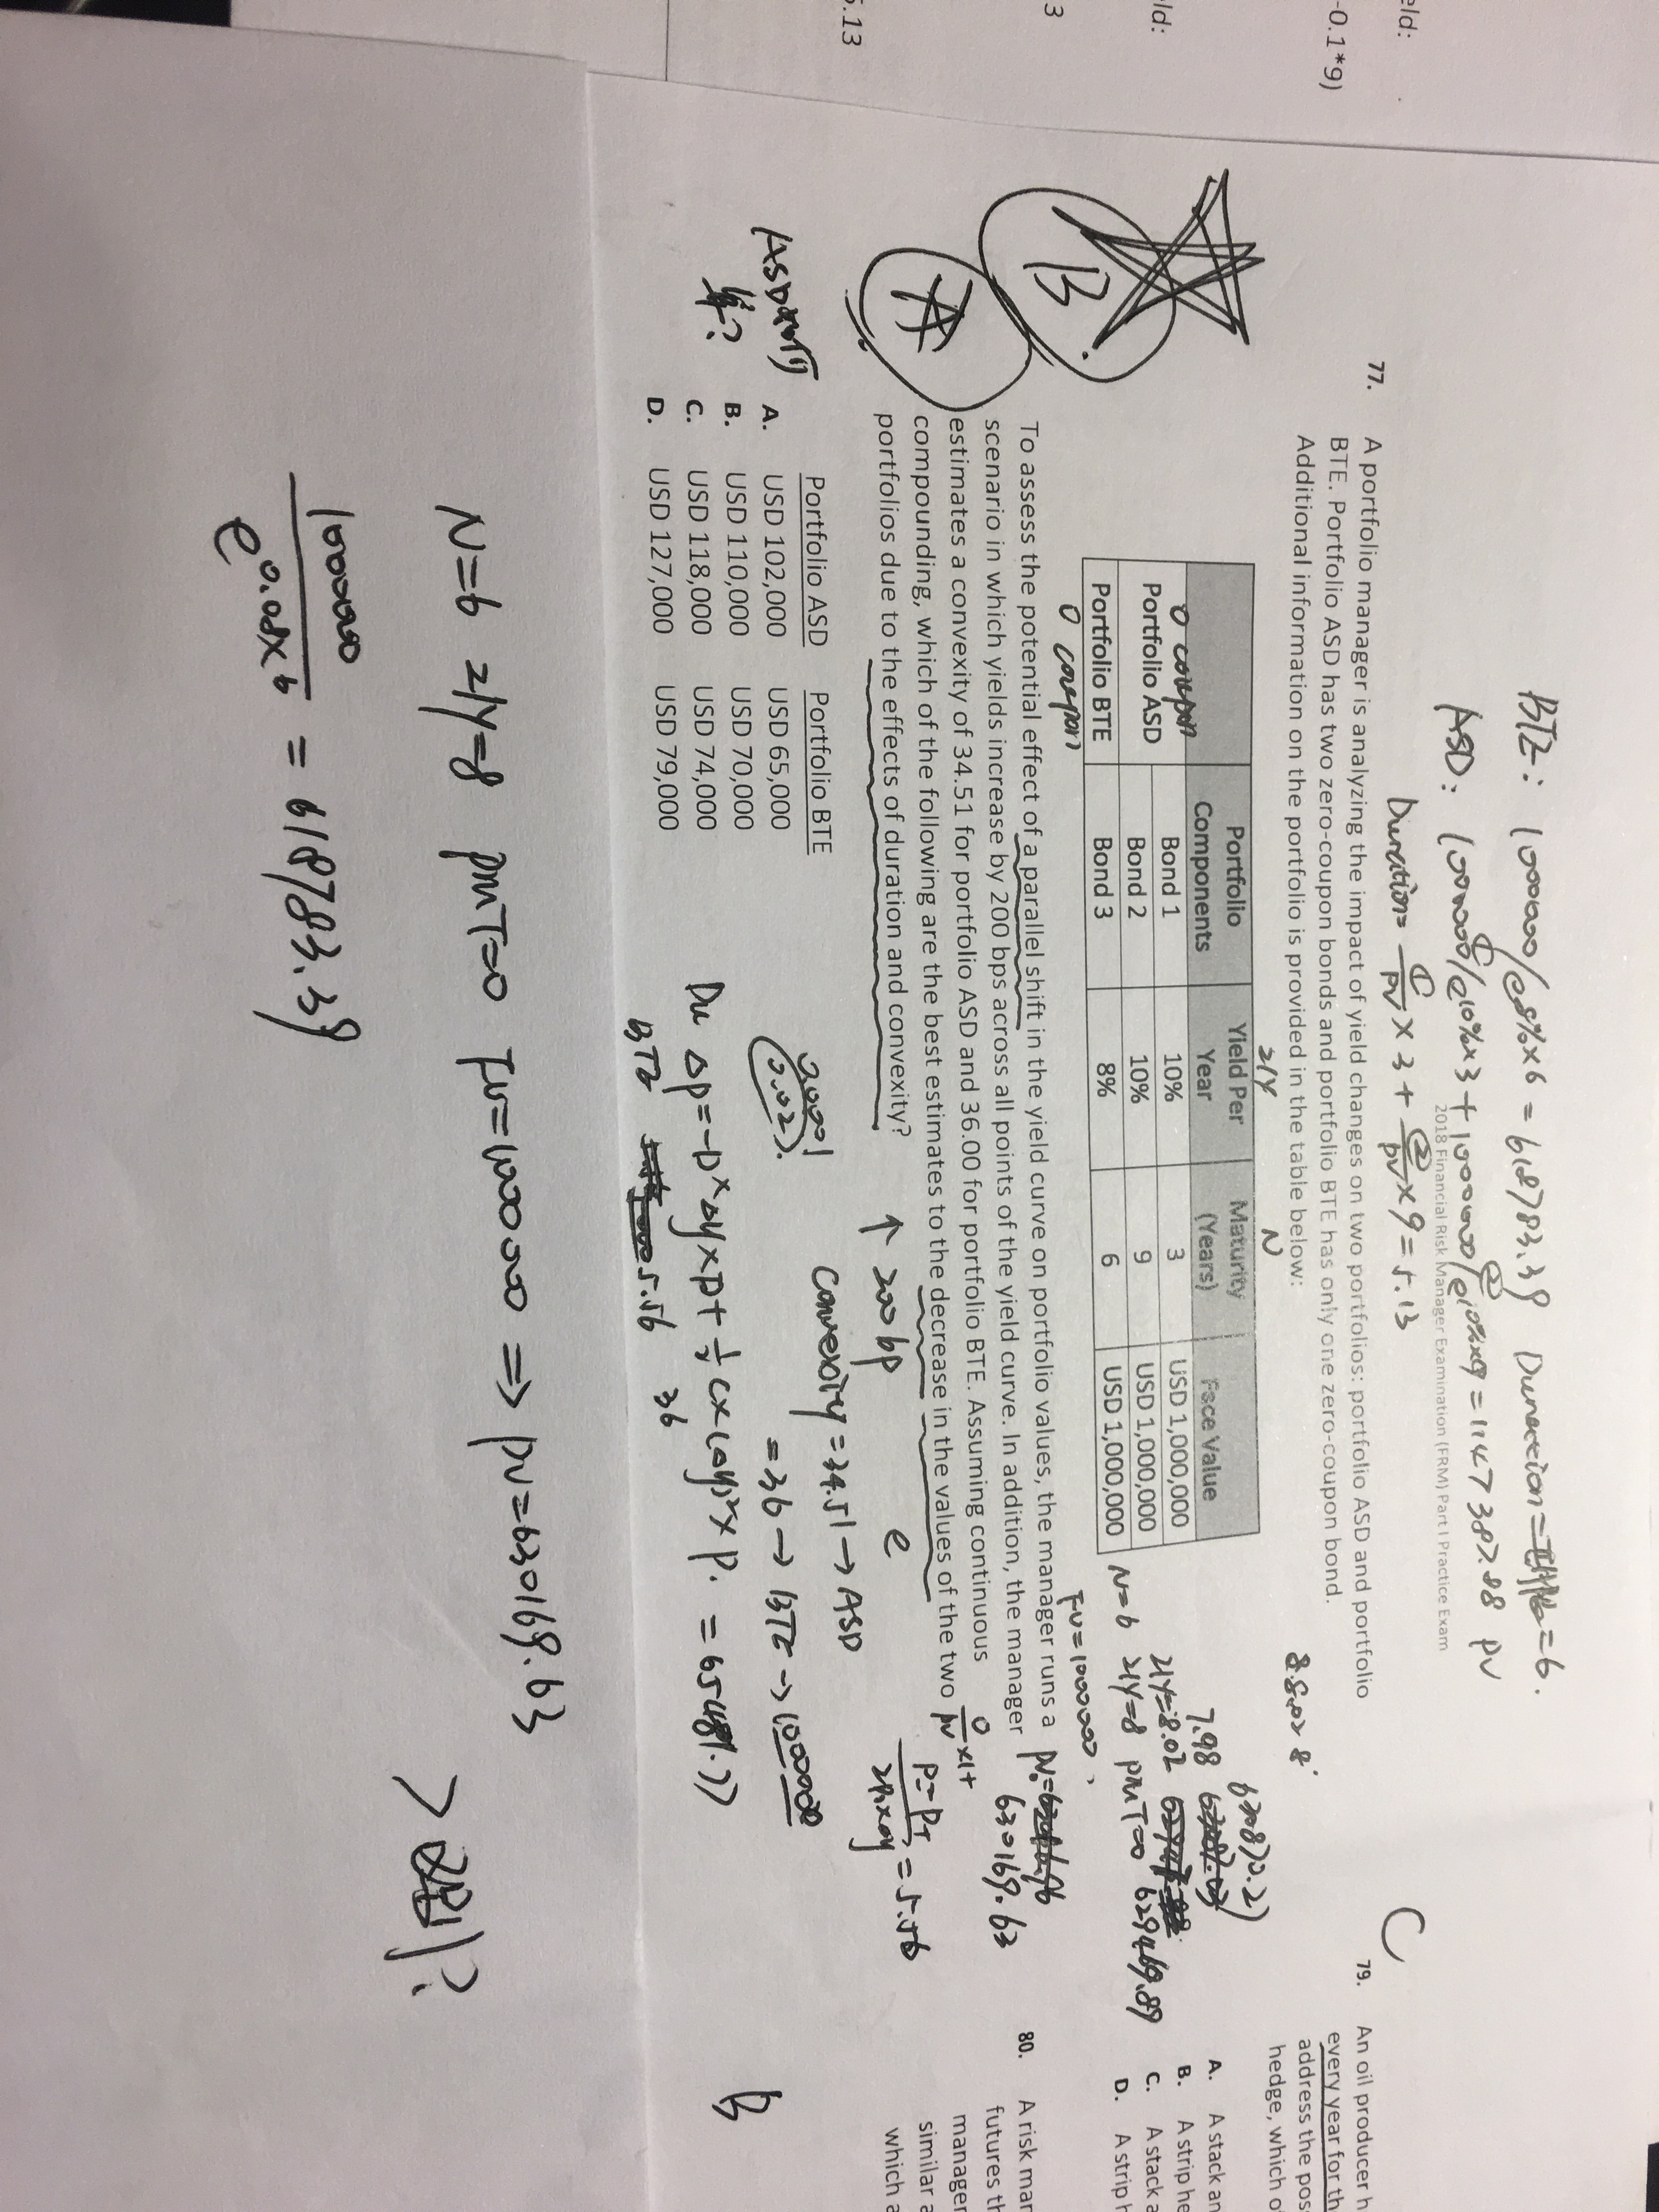 BTE: 1000000/e^8%×6 = 618783.39 Duration = 6.
ASD: 1000000/e^10%×3 + 1000000/e^10%×9 = 1147387.88 PV
2018 Financial Risk Manager Examination (FRM) Part I Practice Exam
Duration = ①/PV × 3 + ②/PV × 9 = 5.13
77. A portfolio manager is analyzing the impact of yield changes on two portfolios: portfolio ASD and portfolio
BTE. Portfolio ASD has two zero-coupon bonds and portfolio BTE has only one zero-coupon bond.
Additional information on the portfolio is provided in the table below:
I/Y N
Portfolio Components Yield Per Year Maturity (Years) Face Value
0 coupon
Portfolio ASD Bond 1 10% 3 USD 1,000,000
Bond 2 10% 9 USD 1,000,000
Portfolio BTE Bond 3 8% 6 USD 1,000,000
0 coupon
630870.2
7.98
I/Y=8.02
N=6 I/Y=8 PMT=0 629469.89
FV=1000000,
To assess the potential effect of a parallel shift in the yield curve on portfolio values, the manager runs a
scenario in which yields increase by 200 bps across all points of the yield curve. In addition, the manager
estimates a convexity of 34.51 for portfolio ASD and 36.00 for portfolio BTE. Assuming continuous
compounding, which of the following are the best estimates to the decrease in the values of the two
portfolios due to the effects of duration and convexity?
630169.63
= 5.56
B.
A
↑ 200bp e
Convexity = 34.51 → ASD
= 36 → BTE → 1000000
0.0001
0.02
Portfolio ASD Portfolio BTE
A. USD 102,000 USD 65,000
B. USD 110,000 USD 70,000
C. USD 118,000 USD 74,000
D. USD 127,000 USD 79,000
ASD
算?
Du ΔP = -D × Δy × P + 1/2 C × (Δy)² × P. = 65481.77
BTE 5.56 36
N=6 I/Y=8 PMT=0 FV=1000000 ⇒ PV=630169.63
1000000/e^0.08×6 = 618783.39
C
79. An oil producer h
every year for th
address the pos
hedge, which o
A. A stack an
B. A strip he
C. A stack a
D. A strip h
80. A risk man
futures th
manager
similar a
which a
B
eld:
-0.1*9)
ld:
3
5.13